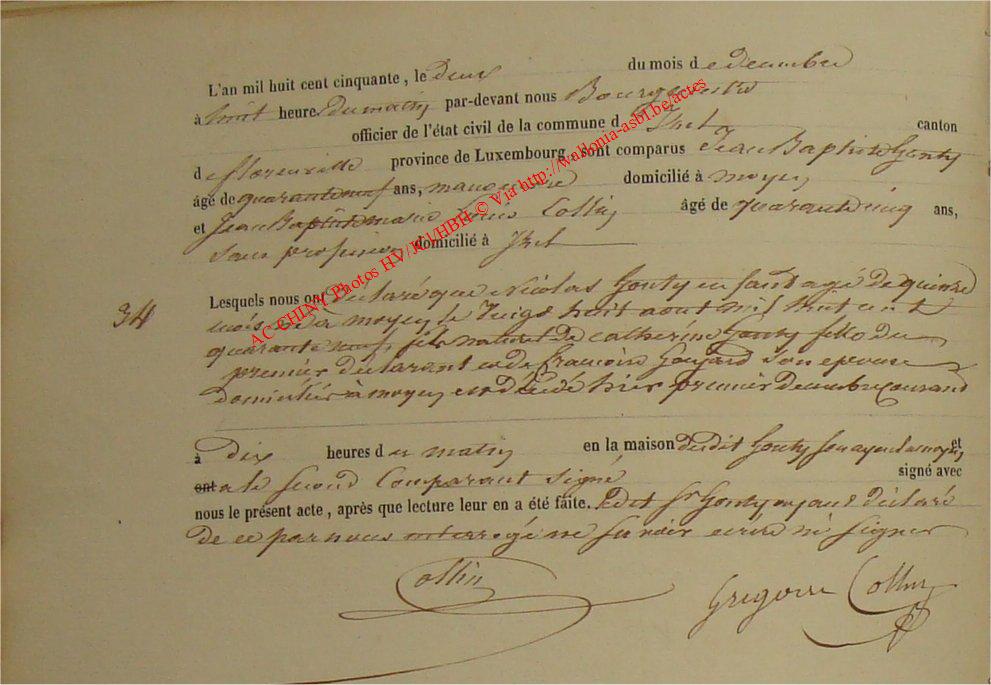 L'an mil huit cent cinquante, le deux du mois d e decembre
à huit heure du matin par-devant nous Bourgmestre
officier de l'état civil de la commune d' Izel canton
d e florenville province de Luxembourg, sont comparus Jean Baptiste Gonty
âgé de quarante neuf ans, manoeuvre domicilié à moyen
et Jean Baptiste marie Louis Collin âgé de quarante cinq ans,
sans profession domicilié à Izel
34
Lesquels nous ont déclaré que Nicolas Gonty enfant agé de quinze
mois né à moyen le vingt huit aout mil huit cent
quarante neuf, fils naturel de catherine Gonty fille du
premier déclarant et de françoise son epouse
domiciliés à moyen est décédé hier premier decembre courand
à Dix heures d u matin en la maison dudit Gonty son ayeul a moyen et
ont a le second Comparant signé signé avec
nous le présent acte, après que lecture leur en a été faite. ledit Sr Gonty ayant déclaré
de ce par nous interrogé ne savoir ecrire ni signer
Collin
Gregoire Collin
AC CHINY Photos HV/JCl/HBH © Via http://wallonia-asbl.be/actes